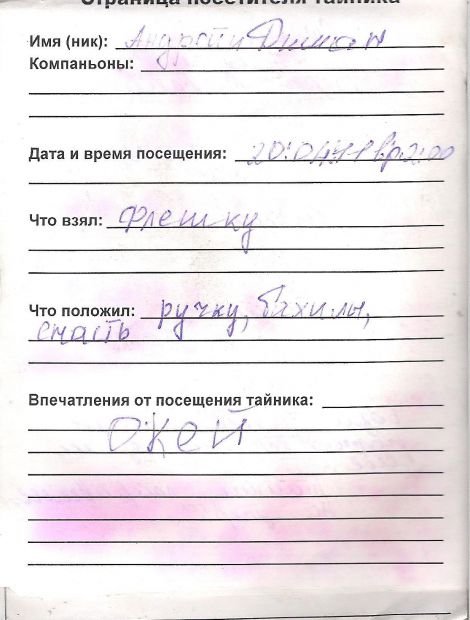 Страница посетителя тайника
Имя (ник): Андрей и Диман
Компаньоны:
Дата и время посещения:
Что взял: Флешку
Что положил: ручку, бахилы,
снасть
Впечатления от посещения тайника:
Окей